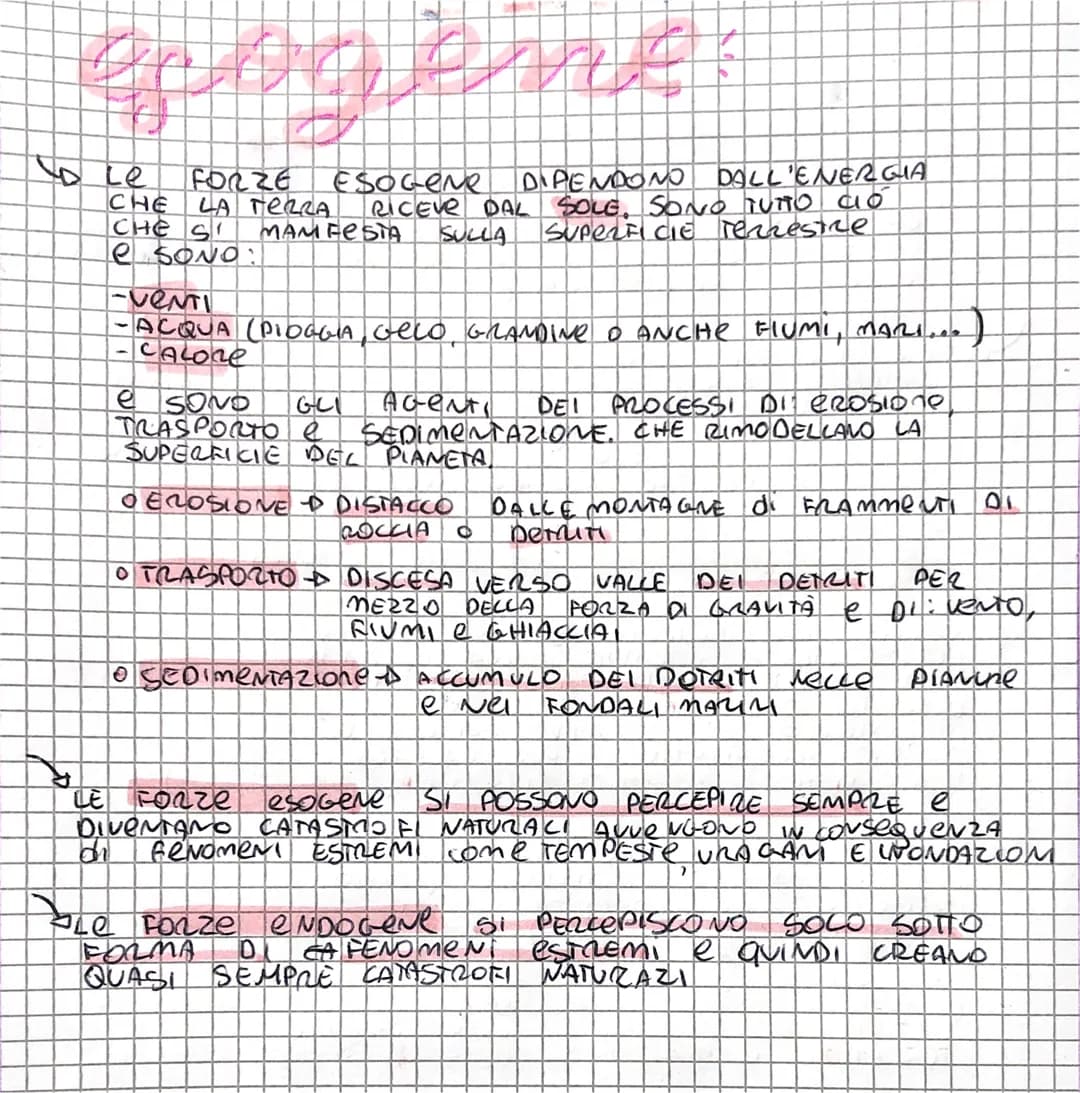 esogene:
Le FORZE ESOGENE DIPENDONO DALL'ENERGIA
CHE LA TERRA RICEVE DAL SOLE. SONO TUTTO CIÒ
CHE SI MANIFESTA SULLA SUPERFICIE TERRESTRE
e SONO:
-VENTI
-ACQUA (PIOGGIA, GELO, GRANDINE O ANCHE FIUMI, MARI...)
- CALORE
e SONO GLI AGENTI DEI PROCESSI DI EROSIONE,
TRASPORTO e SEDIMENTAZIONE. CHE RIMODELLANO LA
SUPERFICIE DEL PIANETA.
O EROSIONE → DISTACCO DALLE MONTAGNE di FRAMMENTI DI
ROCCIA O DETRITI
O TRASPORTO → DISCESA VERSO VALLE DEI DETRITI PER
MEZZO DELLA FORZA DI GRAVITÀ e DI: VENTO,
FIUMI e GHIACCIAI
O SEDIMENTAZIONE → ACCUMULO DEI DETRITI NELLE PIANURE
e NEI FONDALI MARINI
LE FORZE ESOGENE SI POSSONO PERCEPIRE SEMPRE e
DIVENTANO CATASTROFI NATURALI AVVENGONO IN CONSEQUENZA
di FENOMENI ESTREMI come TEMPESTE, URAGANI E INONDAZIONI
Le FORZE ENDOGENE SI PERCEPISCONO SOLO SOTTO
FORMA DI FENOMENI ESTREMI e QUINDI CREANO
QUASI SEMPRE CATASTROFI NATURALI